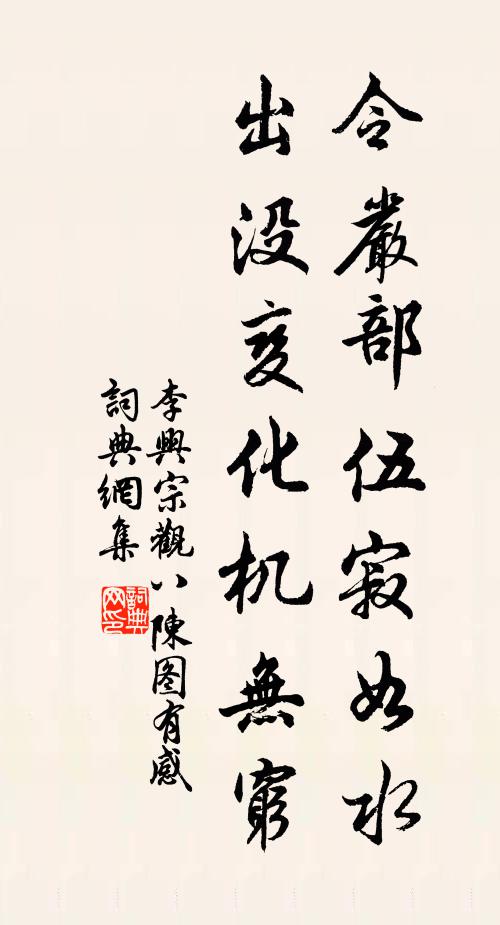 令嚴部伍寂如水
出没变化机無窮
李興宗觀八陳图有感
詞典網集
詞典网印